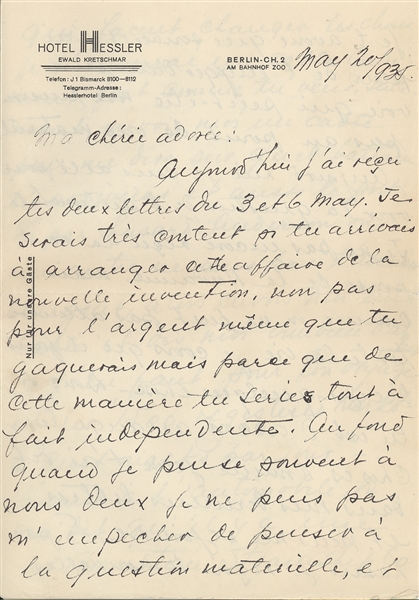 HOTEL HESSLER
EWALD KRETSCHMAR
Telefon: J 1 Bismarck 8100—8112
Telegramm-Adresse:
Hesslerhotel Berlin
BERLIN-CH. 2
AM BAHNHOF ZOO
May 20/935.
Nur für unsere Gäste
Ma chérie adorée:
Aujourd'hui j'ai reçu
tes deux lettres du 3 et 6 May. Je
serais très content si tu arrivais
à arranger cette affaire de la
nouvelle invention, non pas
pour l'argent même que tu
gagnerais mais parce que de
cette manière tu series tout à
fait independente. Au fond
quand je pense souvent à
nous deux je ne peus pas
m'empecher de penser à
la question materielle, et